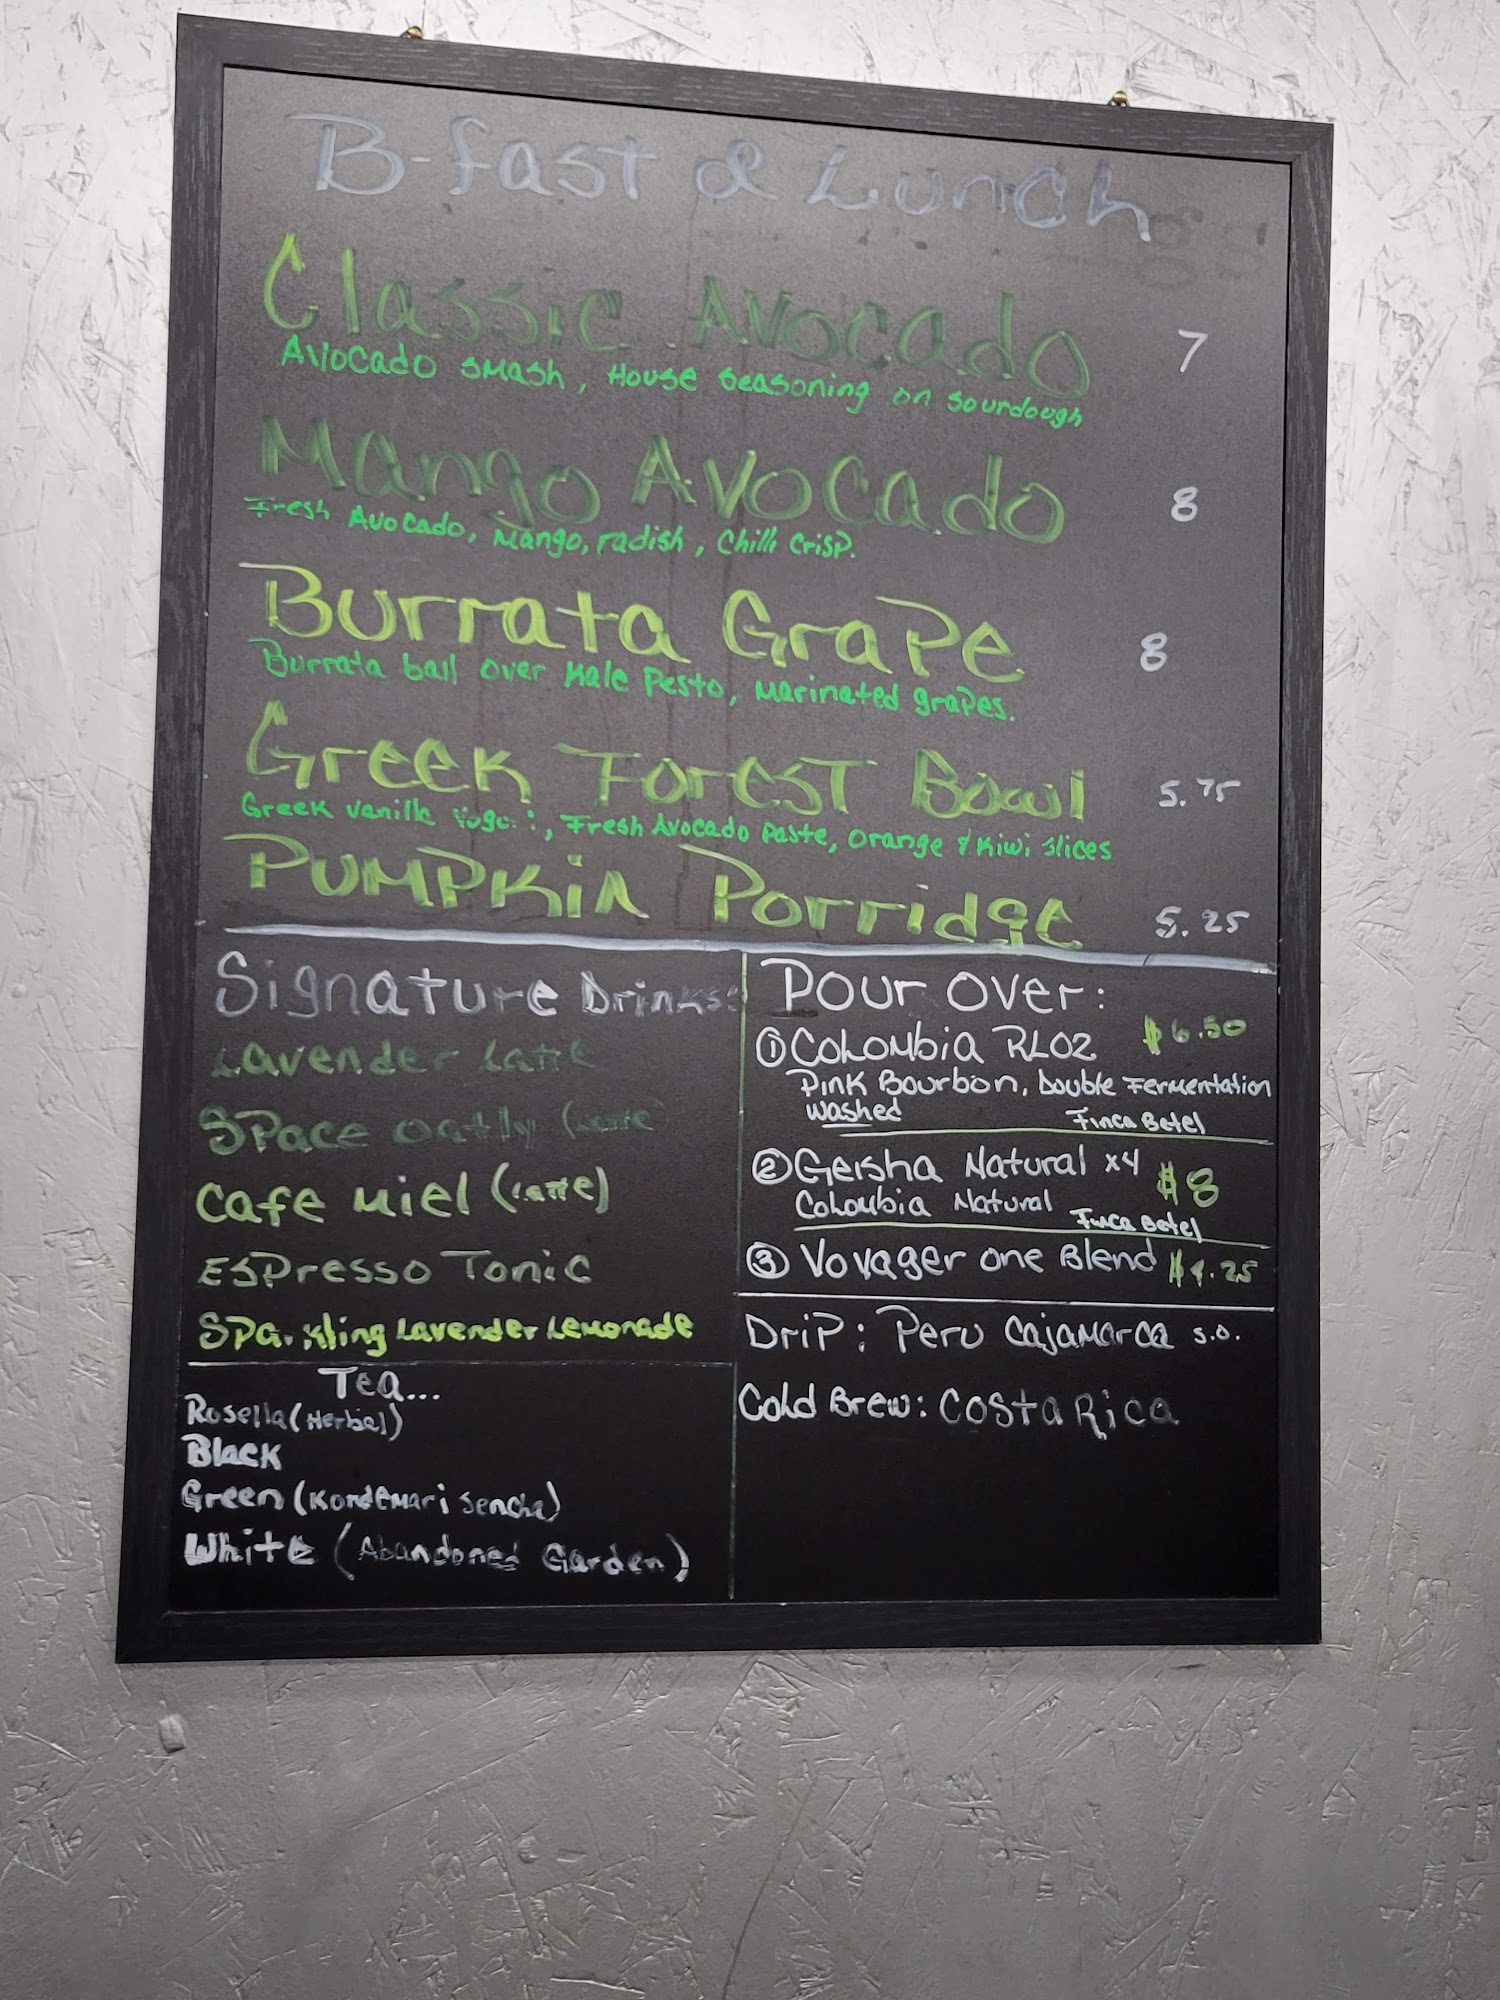 B-fast & Lunch
Classic Avocado 7
Avocado smash, House seasoning on sourdough
Mango Avocado 8
Fresh Avocado, Mango, radish, Chilli Crisp.
Burrata Grape 8
Burrata ball over Kale Pesto, Marinated grapes.
Greek Forest Bowl 5.75
Greek Vanilla, Fresh Avocado Paste, orange & Kiwi slices
Pumpkin Porridge 5.25
Signature Drinks:
Lavender Latte
Space oatly (Latte)
Cafe Miel (Latte)
Espresso Tonic
Sparkling Lavender Lemonade
Tea...
Rosella (Herbal)
Black
Green (Kordemari Sencha)
White (Abandoned Garden)
Pour Over:
① Colombia RL02 $6.50
Pink Bourbon, Double Fermentation
Washed Finca Betel
② Geisha Natural x4 $8
Colombia Natural
Finca Betel
③ Voyager one Blend $4.25
Drip: Peru Cajamarca S.O.
Cold Brew: Costa Rica